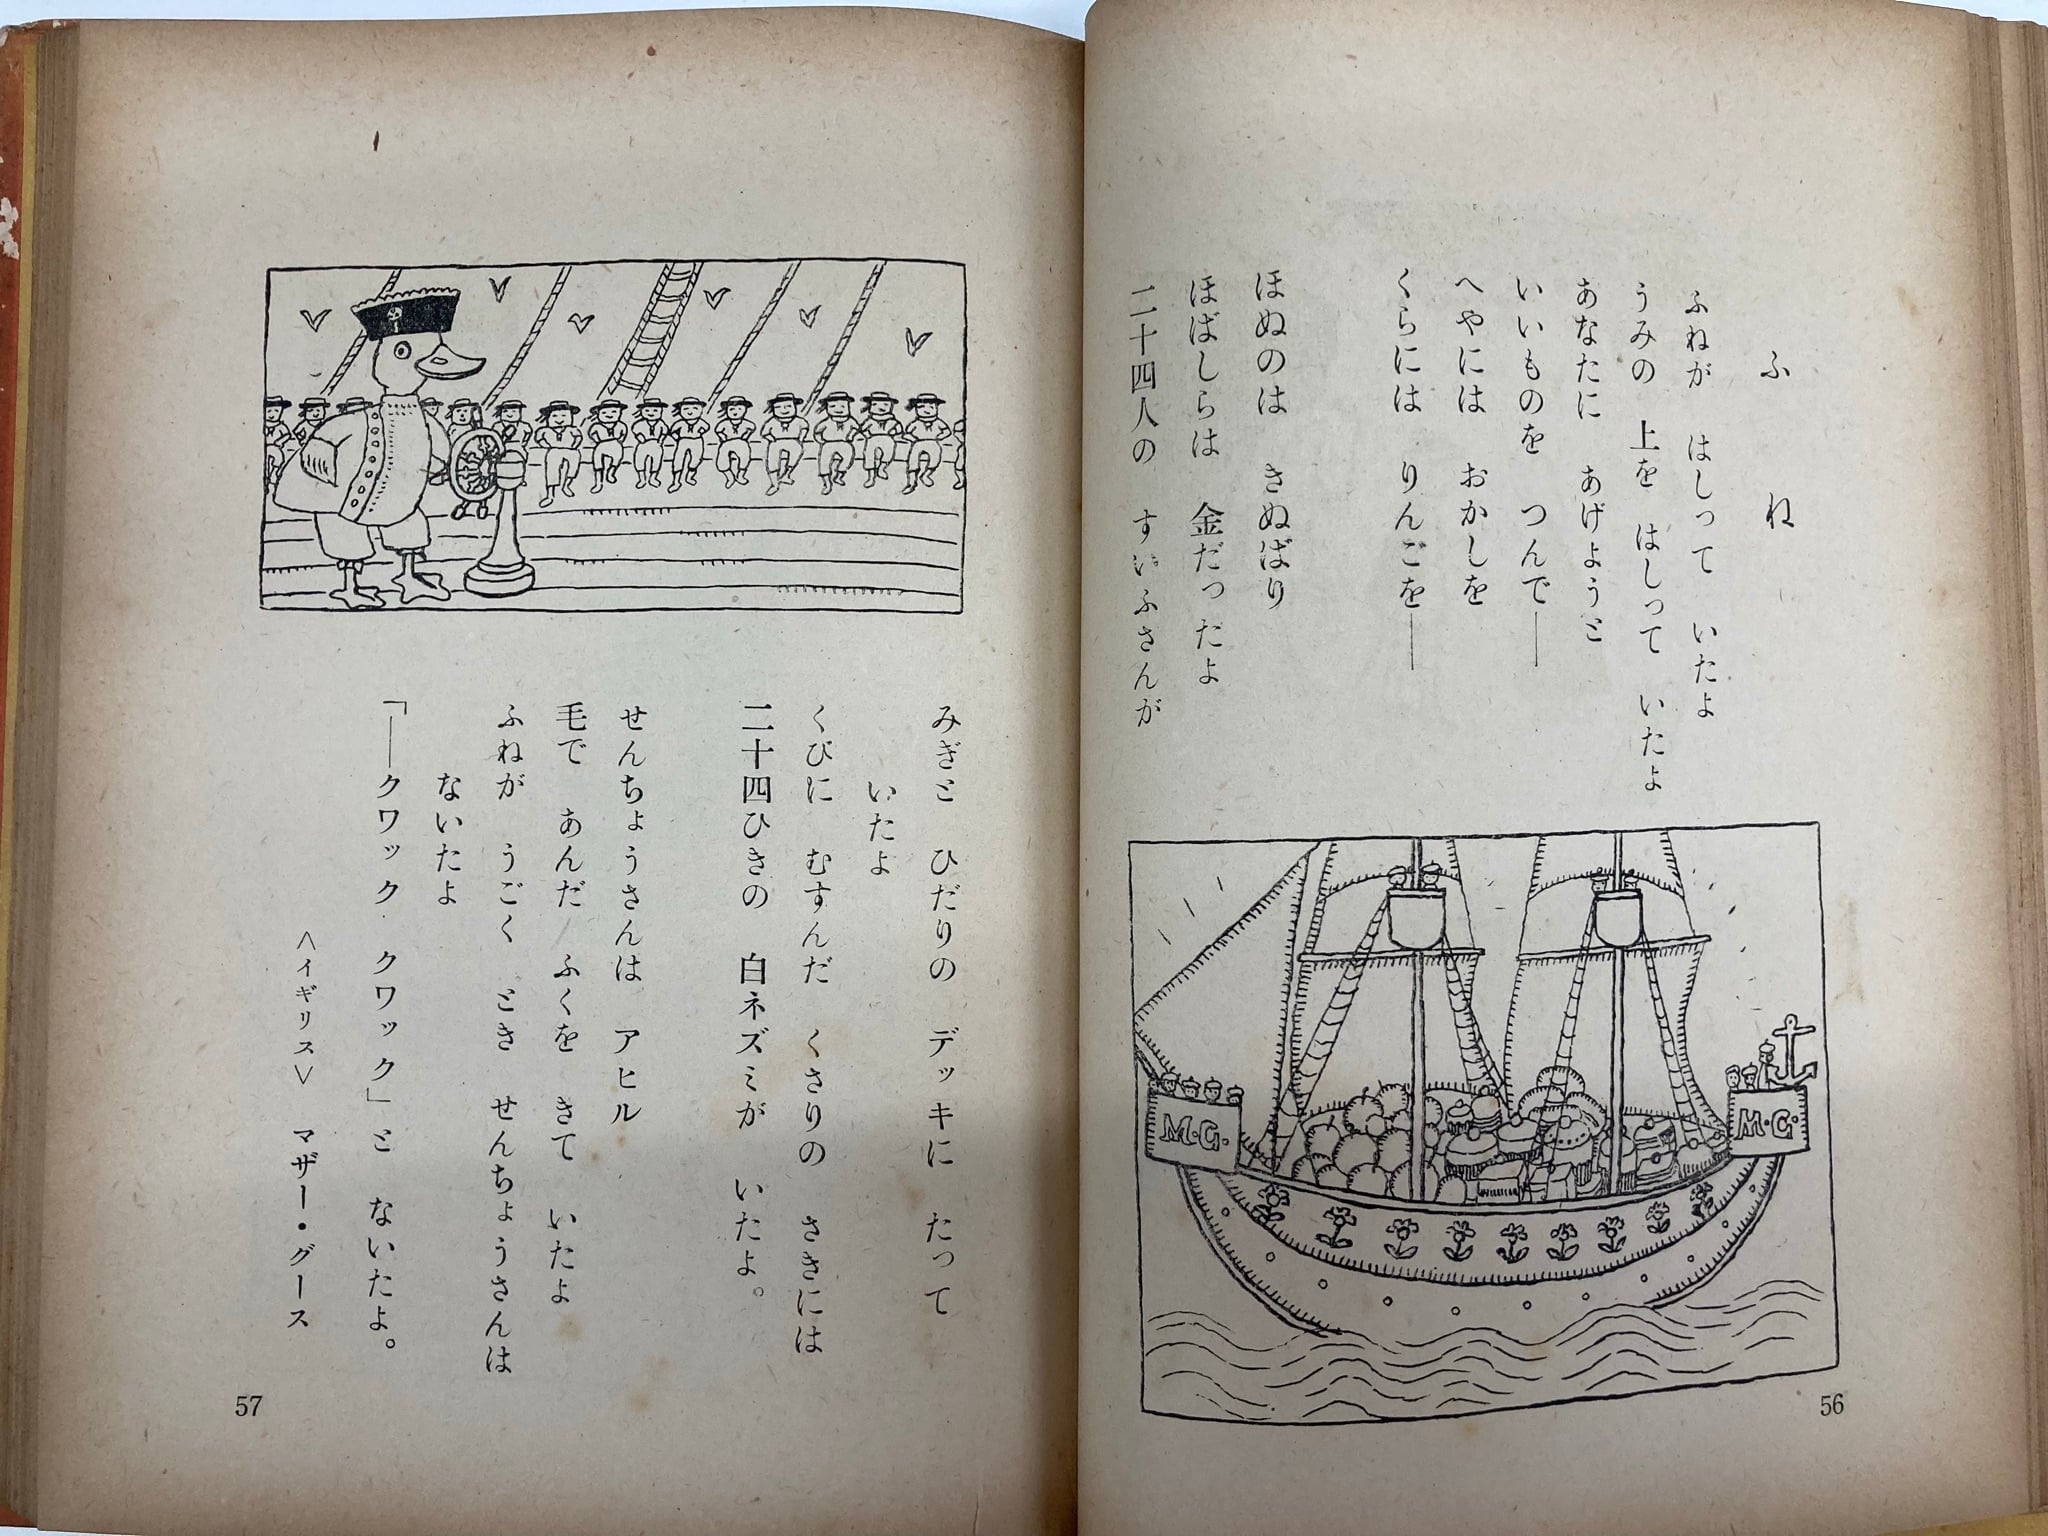 ふね
ふねが はしって いたよ
うみの 上を はしって いたよ
あなたに あげようと
いいものを つんで――
へやには おかしを
くらには りんごを――
ほぬのは きぬばり
ほばしらは 金だったよ
二十四人の すいふさんが
M.G.
M.G.
56
みぎと ひだりの デッキに たって
いたよ
くびに むすんだ くさりの さきには
二十四ひきの 白ネズミが いたよ。
せんちょうさんは アヒル
毛で あんだ ふくを きて いたよ
ふねが うごく とき せんちょうさんは
ないたよ
「――クワック クワック」と ないたよ。
<イギリス> マザー・グース
57